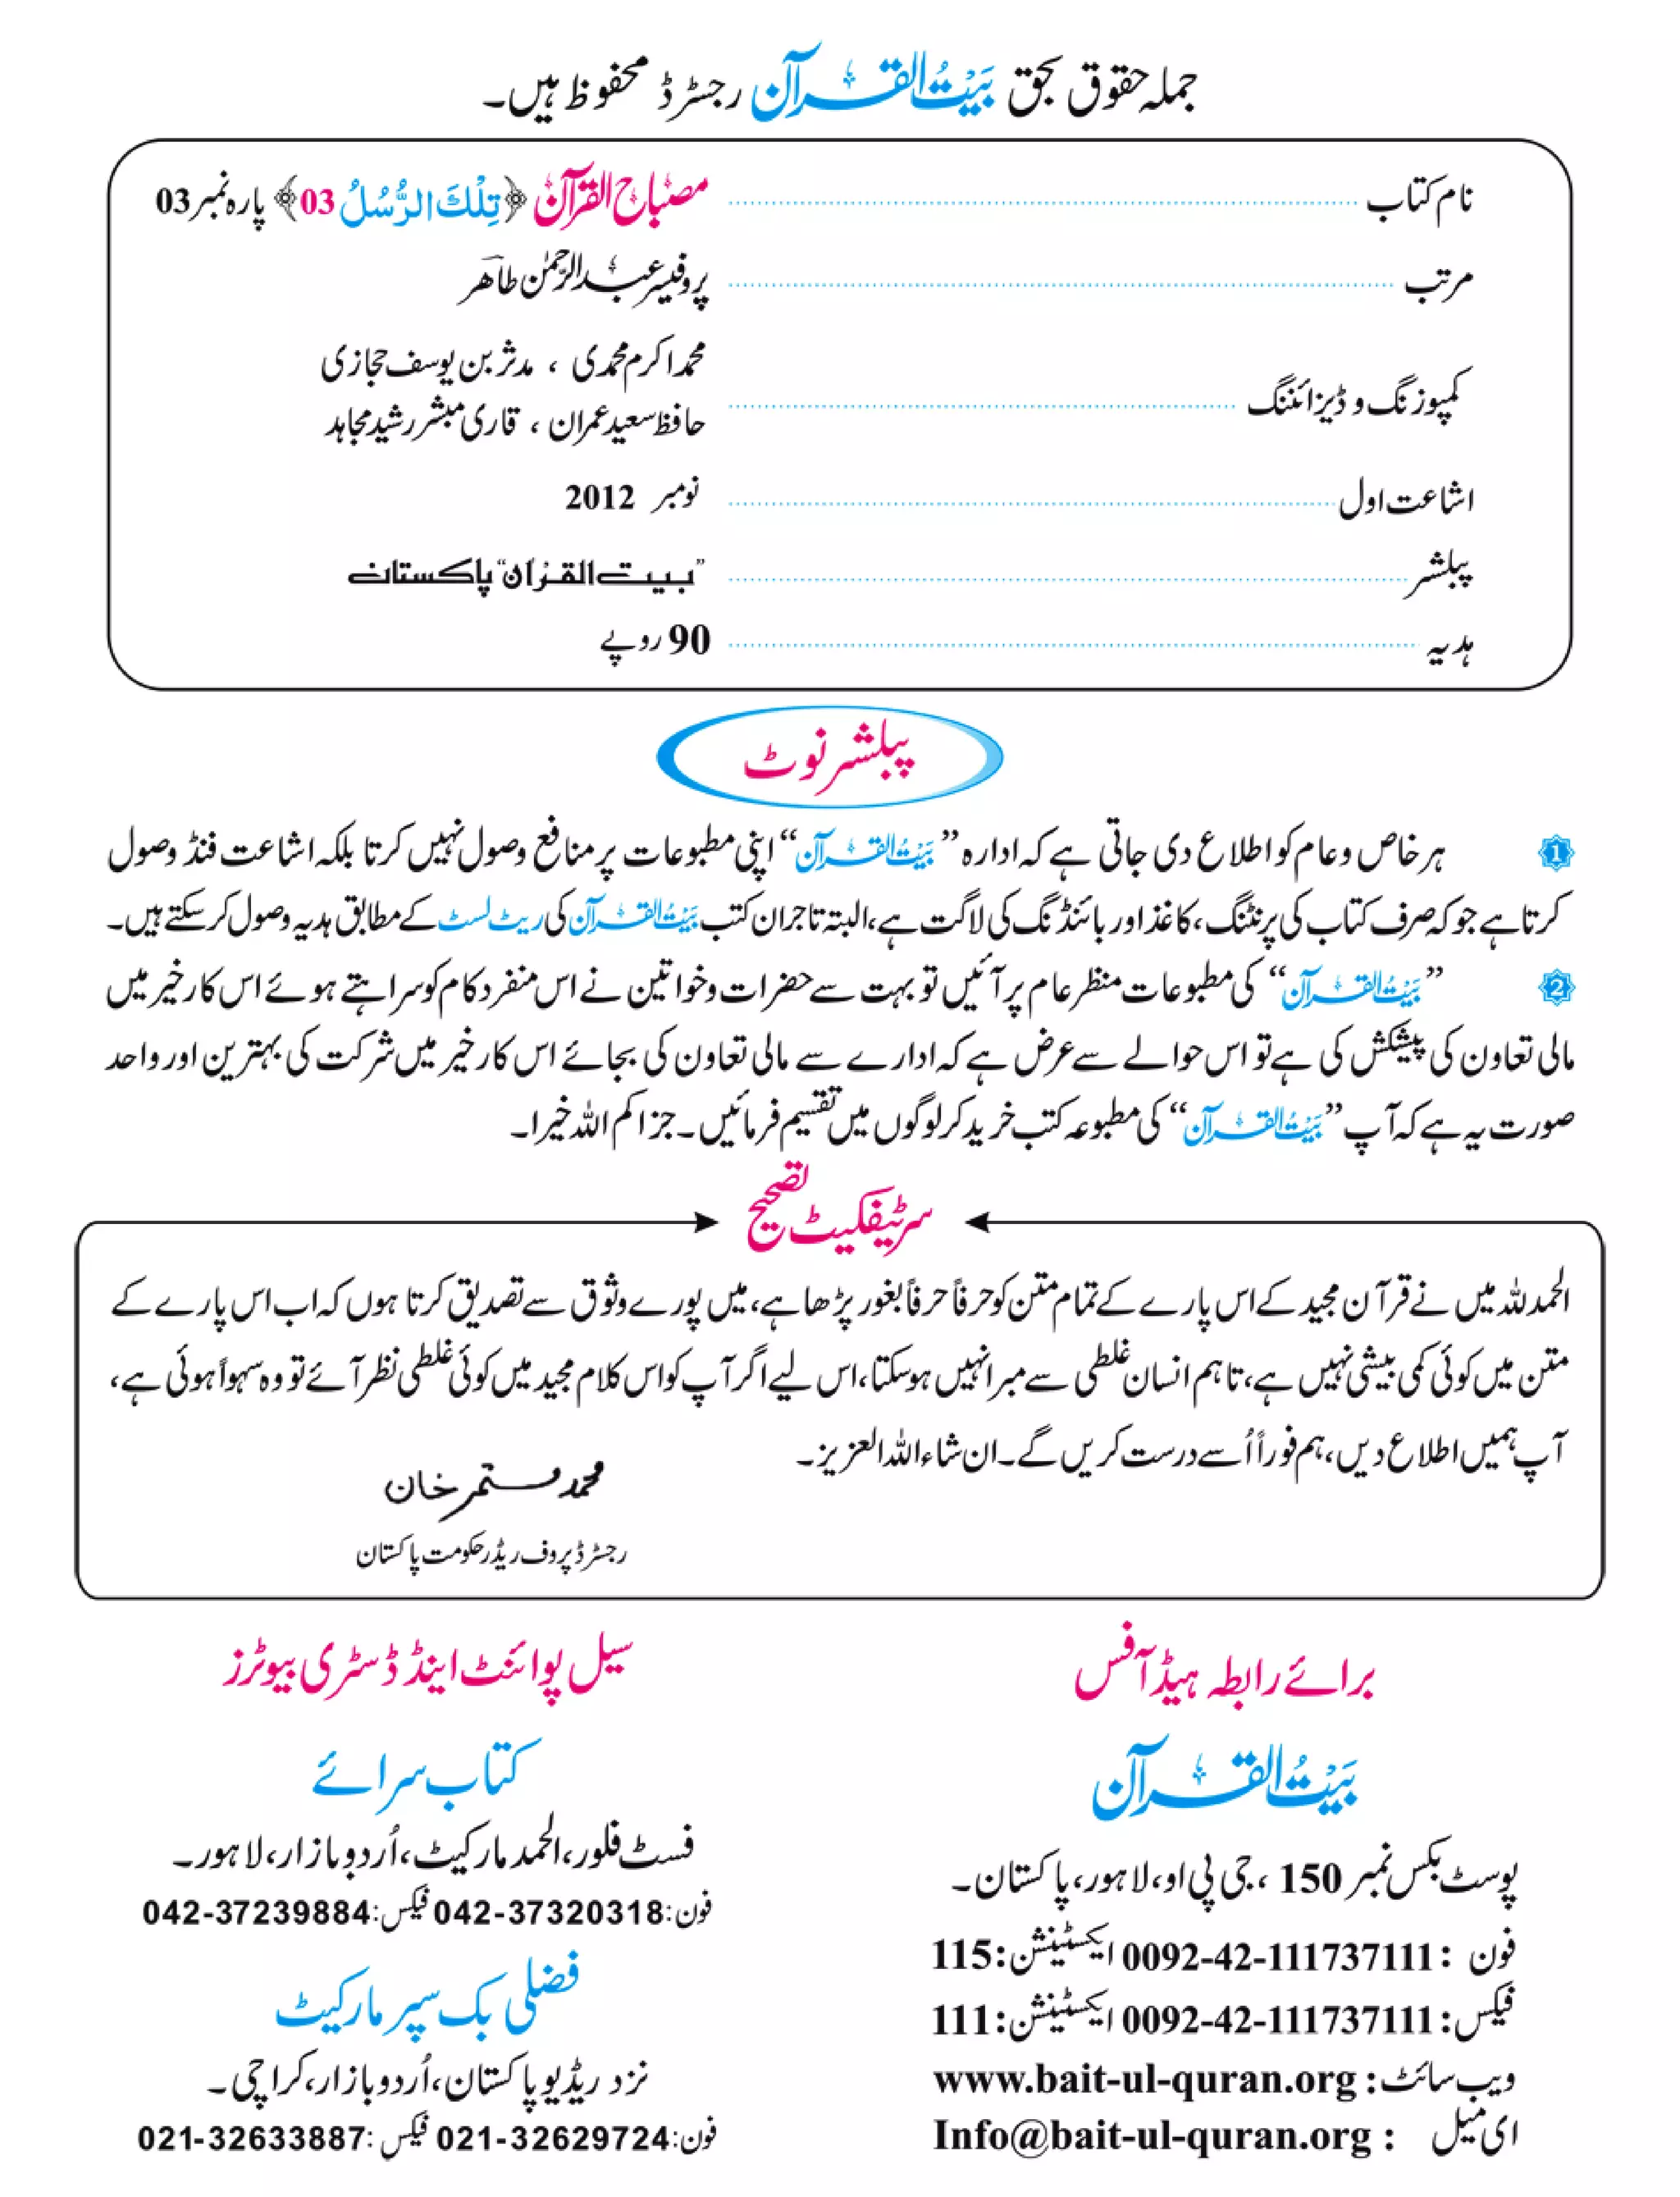 جملہ حقوق بحق بَيْتُ القرآن رجسٹرڈ محفوظ ہیں۔
نام کتاب ........ مصباح القرآن ﴿تِلْكَ الرُّسُلُ 03﴾ پارہ نمبر 03
مرتب ........ پروفیسر عبدالرحمٰن طاہر
کمپوزنگ و ڈیزائننگ ........ محمد اکرم محمدی ، مدثر بن یوسف حجازی
حافظ سعید عمران ، قاری مبشر رشید مجاہد
اشاعت اول ........ نومبر 2012
پبلشر ........ ”بیت القرآن“ پاکستان
ہدیہ ........ 90 روپے
پبلشر نوٹ
1 ہر خاص و عام کو اطلاع دی جاتی ہے کہ ادارہ ”بَيْتُ القرآن“ اپنی مطبوعات پر منافع وصول نہیں کرتا بلکہ اشاعت فنڈ وصول
کرتا ہے جو کہ صرف کتاب کی پرنٹنگ، کاغذ اور بائنڈنگ کی لاگت ہے، البتہ تاجران کتب بَيْتُ القرآن کی ریٹ لسٹ کے مطابق ہدیہ وصول کر سکتے ہیں۔
2 ”بَيْتُ القرآن“ کی مطبوعات منظر عام پر آئیں تو بہت سے حضرات و خواتین نے اس منفرد کام کو سراہتے ہوئے اس کار خیر میں
مالی تعاون کی پیشکش کی ہے تو اس حوالے سے عرض ہے کہ ادارے سے مالی تعاون کی بجائے اس کار خیر میں شرکت کی بہترین اور واحد
صورت یہ ہے کہ آپ ”بَيْتُ القرآن“ کی مطبوعہ کتب خرید کر لوگوں میں تقسیم فرمائیں۔ جزاکم اللہ خیرا۔
سرٹیفکیٹ تصحیح
الحمدللہ میں نے قرآن مجید کے اس پارے کے تمام متن کو حرفاً حرفاً بغور پڑھا ہے، میں پورے وثوق سے تصدیق کرتا ہوں کہ اب اس پارے کے
متن میں کوئی کمی بیشی نہیں ہے، تاہم انسان غلطی سے مبرا نہیں ہو سکتا، اس لیے اگر آپ کو اس کلام مجید میں کوئی غلطی نظر آئے تو وہ سہواً ہوئی ہے،
آپ ہمیں اطلاع دیں، ہم فوراً اُسے درست کریں گے۔ ان شاء اللہ العزیز۔
محمد مستمر خان
رجسٹرڈ پروف ریڈر حکومت پاکستان
برائے رابطہ ہیڈ آفس
بَيْتُ القرآن
پوسٹ بکس نمبر 150 ، جی پی او، لاہور، پاکستان۔
فون : 0092-42-111737111 ایکسٹینشن: 115
فیکس: 0092-42-111737111 ایکسٹینشن: 111
ویب سائٹ: www.bait-ul-quran.org
ای میل : Info@bait-ul-quran.org
سیل پوائنٹ اینڈ ڈسٹری بیوٹرز
کتاب سرائے
فسٹ فلور، الحمد مارکیٹ، اُردو بازار، لاہور۔
فون: 042-37320318 فیکس: 042-37239884
فضلی بک سپر مارکیٹ
نزد ریڈیو پاکستان، اُردو بازار، کراچی۔
فون: 021-32629724 فیکس: 021-32633887